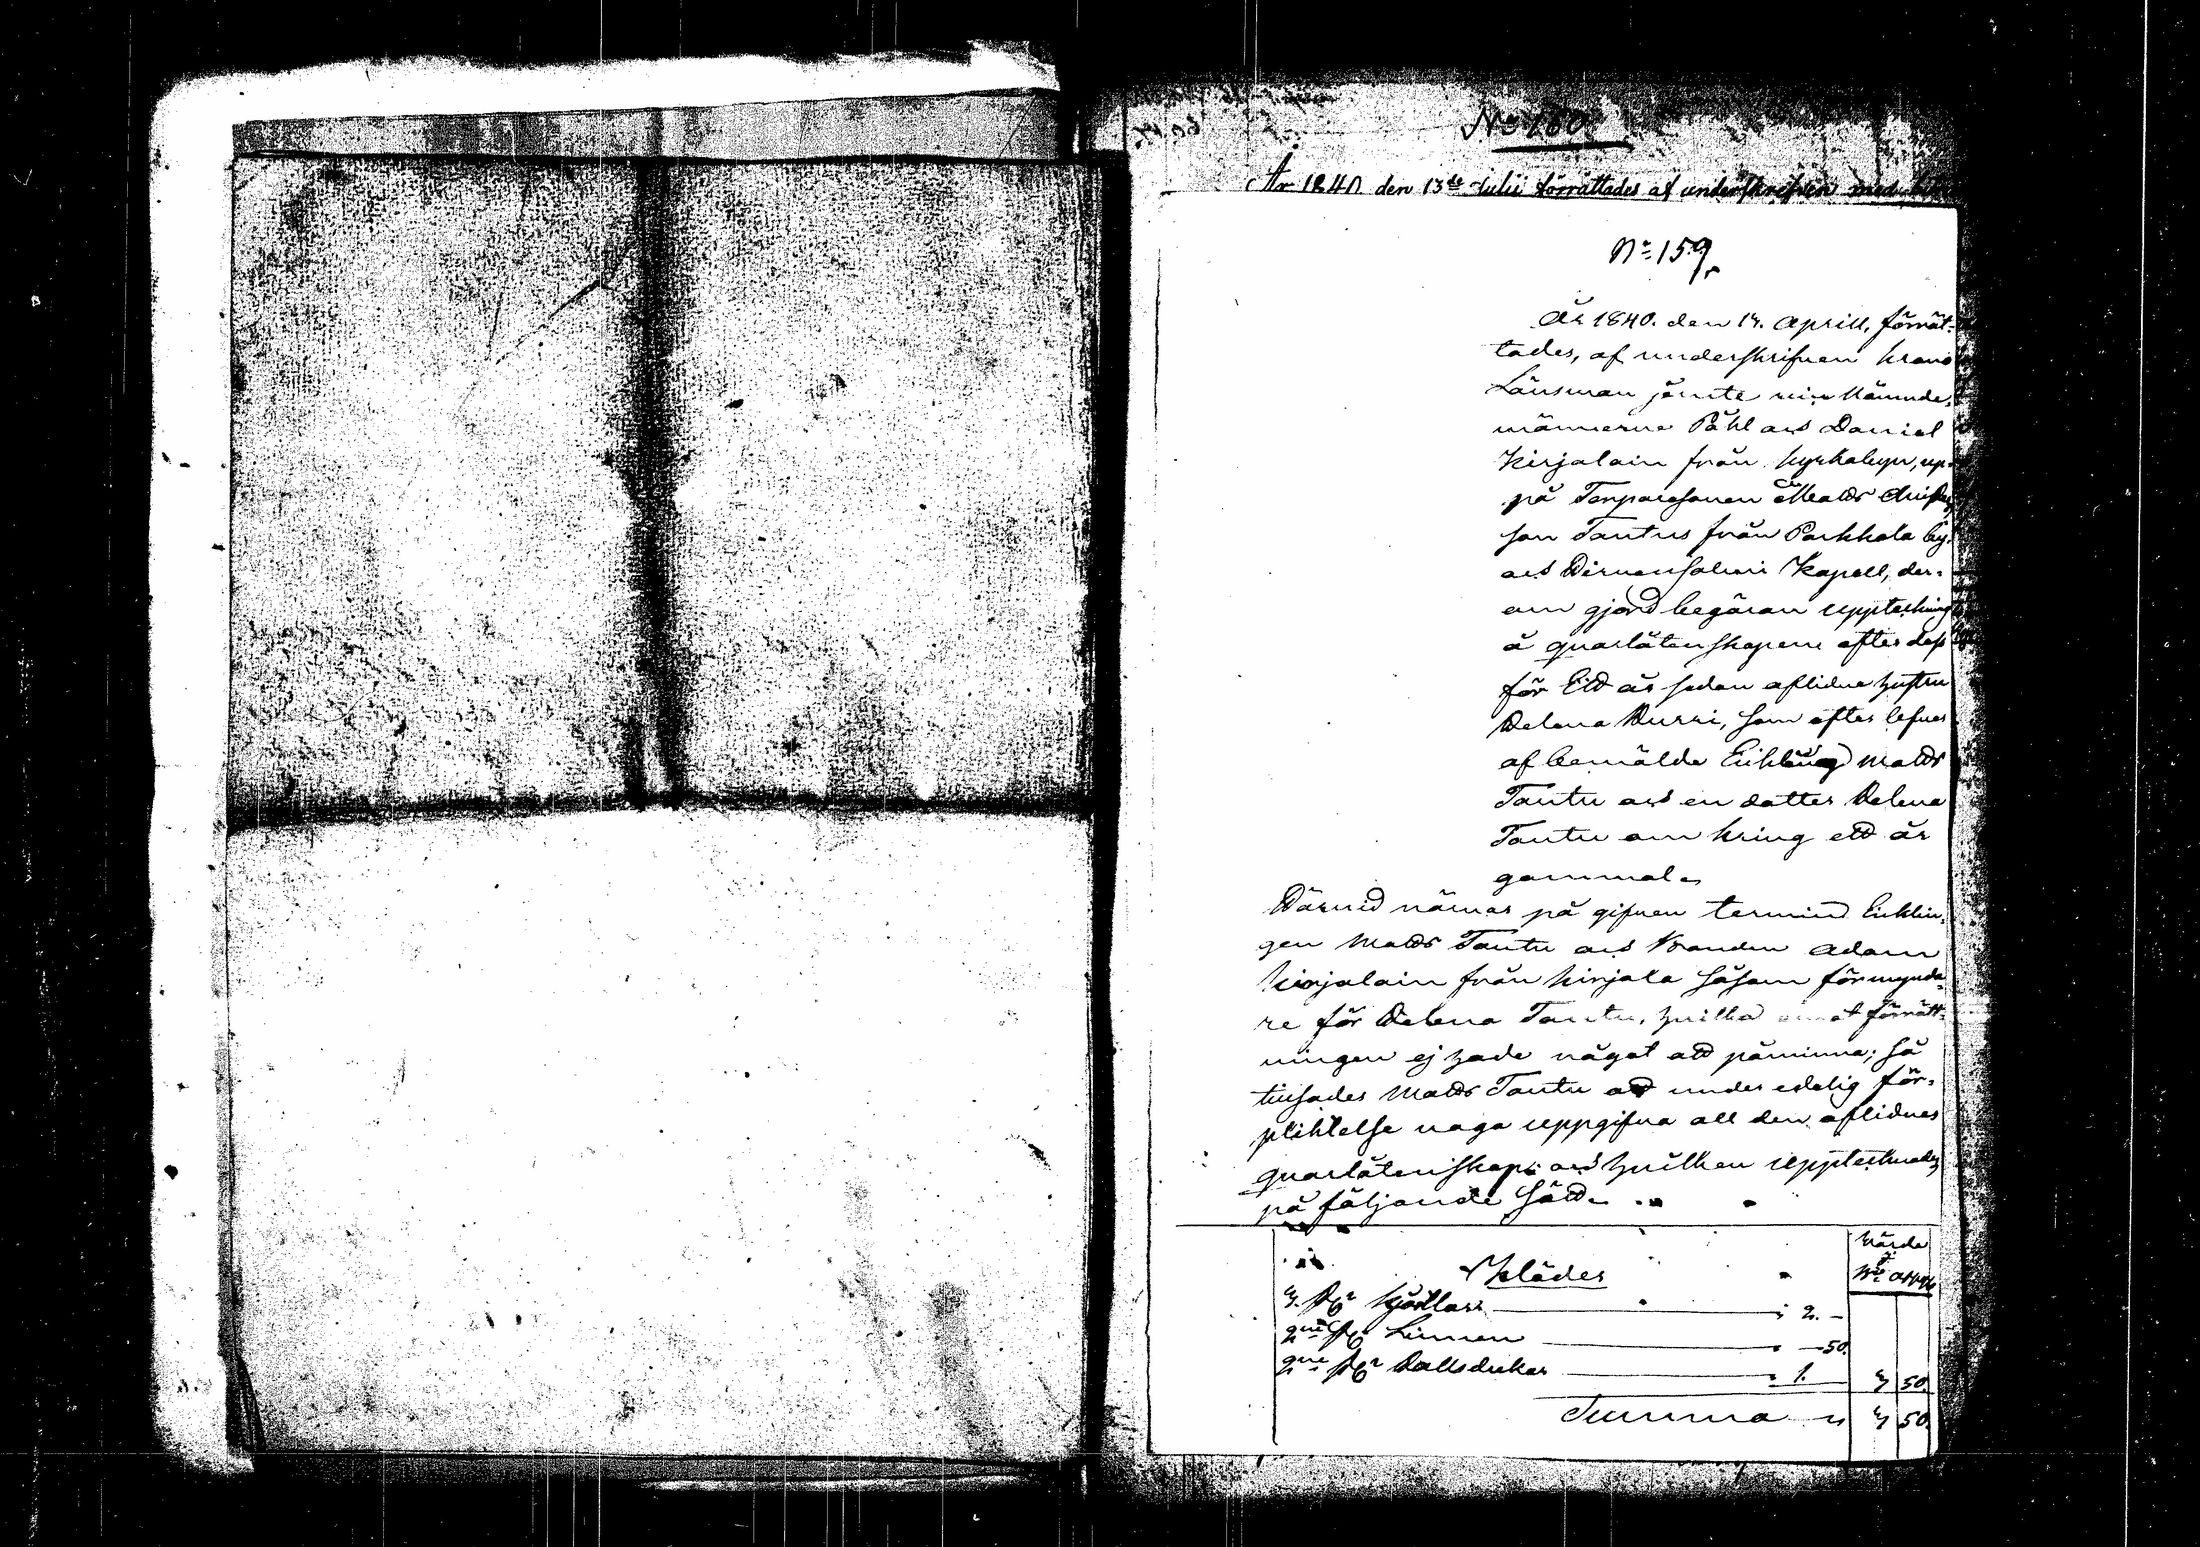 No 160.
År 1840 den 13de Julii förrättades af underskrifven med
No 159,
År 1840. den 14. Aprill, förrät-
tades, af underskrifven krono
Länsman jämte min Nämnde-
männerne Påhl och Daniel
Kirjalain från kyrkobyn, up-
på Torparesonen Matts
son Tantus från Parkkola by,
och Kapell, der-
om gjord begäran uppteckning
å quarlåtenskapen efter dess
för Ett år sedan aflidne hustru
Helena Hurri, som efter lefves
af bemälde Enkling Matts
Tantu och en dotter Helena
Tantu om kring ett år
gammal.
Härvid närvar på gifven termin Enklin-
gen Matts Tantu och Bonden Adam
Kirjalain från Kirjala såsom förmynda-
re för Helena Tantu, hvilka emot förrätt-
ningen ej hade något att påminna; så
tillsades Matts Tantu att under edelig för-
plihtelse noga uppgifva all den aflidnes
quarlåtenskap: och hvilken upptecknades
på följande sätt.
Värde
Kläder
kjortlar 2. -
Linnen - 50.
Halsdukar 1. 3 50.
Summa 3 50.